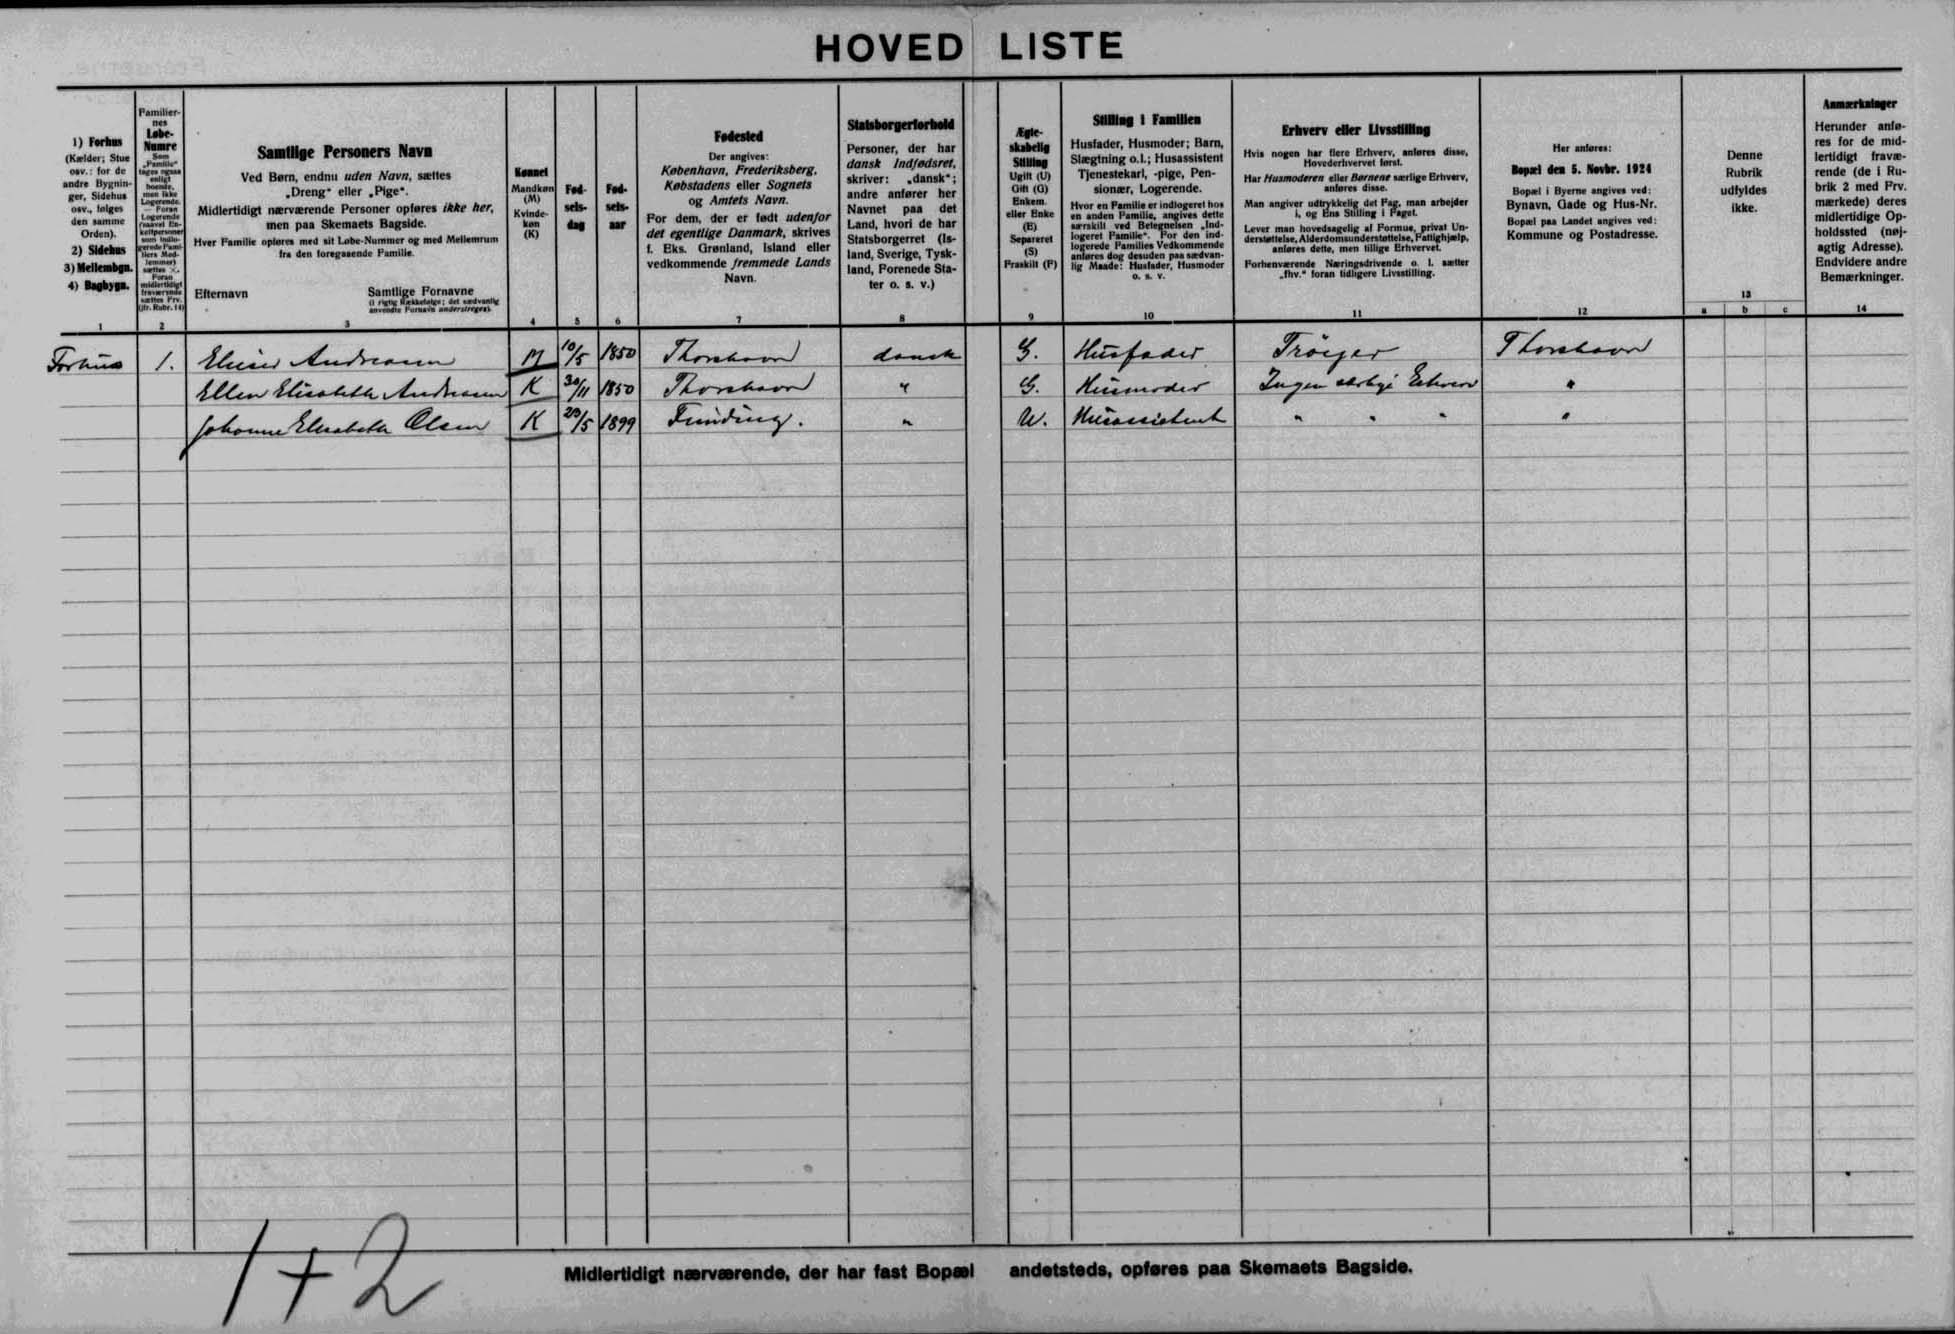 HOVED LISTE
1) Forhus
(Kælder; Stue
osv.: for de
andre Bygnin-
ger, Sidehus
osv., følges
den samme
Orden).
2) Sidehus
3) Mellembgn.
4) Bagbygn.
Familier-
nes
Løbe-
Numre
Samtlige Personers Navn
Ved Børn, endnu uden Navn, sættes
„Dreng“ eller „Pige“.
Midlertidigt nærværende Personer opføres ikke her,
men paa Skemaets Bagside.
Hver Familie opføres med sit Løbe-Nummer og med Mellemrum
fra den foregaaende Familie.
Efternavn Samtlige Fornavne
(i rigtig Rækkefølge; det sædvanlig
anvendte Fornavn understreges).
Kønnet
Mandkøn
(M)
Kvinde-
køn
(K)
Fød-
sels-
dag
Fød-
sels-
aar
Fødested
Der angives:
København, Frederiksberg,
Købstadens eller Sognets
og Amtets Navn.
For dem, der er født udenfor
det egentlige Danmark, skrives
f. Eks. Grønland, Island eller
vedkommende fremmede Lands
Navn.
Statsborgerforhold
Personer, der har
dansk Indfødsret,
skriver: „dansk“;
andre anfører her
Navnet paa det
Land, hvori de har
Statsborgerret (Is-
land, Sverige, Tysk-
land, Forenede Sta-
ter o. s. v.)
Ægte-
skabelig
Stilling
Ugift (U)
Gift (G)
Enkem.
eller Enke
(E)
Separeret
(S)
Fraskilt (F)
Stilling i Familien
Husfader, Husmoder; Barn,
Slægtning o.l.; Husassistent
Tjenestekarl, -pige, Pen-
sionær, Logerende.
Hvor en Familie er indlogeret hos
en anden Familie, angives dette
særskilt ved Betegnelsen „Ind-
logeret Familie“. For den ind-
logerede Families Vedkommende
anføres dog desuden paa sædvan-
lig Maade: Husfader, Husmoder
o. s. v.
Erhverv eller Livsstilling
Hvis nogen har flere Erhverv, anføres disse,
Hovederhvervet først.
Har Husmoderen eller Børnene særlige Erhverv,
anføres disse.
Man angiver udtrykkelig det Fag, man arbejder
i, og Ens Stilling i Faget.
Lever man hovedsagelig af Formue, privat Un-
derstøttelse, Alderdomsunderstøttelse, Fattighjælp,
anføres dette, men tillige Erhvervet.
Forhenværende Næringsdrivende o. l. sætter
„fhv.“ foran tidligere Livsstilling.
Her anføres:
Bopæl den 5. Novbr. 1924
Bopæl i Byerne angives ved:
Bynavn, Gade og Hus-Nr.
Bopæl paa Landet angives ved:
Kommune og Postadresse.
Denne
Rubrik
udfyldes
ikke.
Anmærkninger
Herunder anfø-
res for de mid-
lertidigt fravæ-
rende (de i Ru-
brik 2 med Frv.
mærkede) deres
midlertidige Op-
holdssted (nøj-
agtig Adresse).
Endvidere andre
Bemærkninger.
1 2 3 4 5 6 7 8 9 10 11 12 13 a b c 14
Forhus 1. Elisier Andreasen M 10/5 1850 Thorshavn dansk G. Husfader Trøejer Thorshavn
Ellen Elisabeth Andreasen K 30/11 1850 Thorshavn " G. Husmoder Ingen særlige Erhverv "
Johanne Elisabeth Olsen K 20/5 1899 Funding. " U. Husassistent " " " "
1+2
Midlertidigt nærværende, der har fast Bopæl andetsteds, opføres paa Skemaets Bagside.